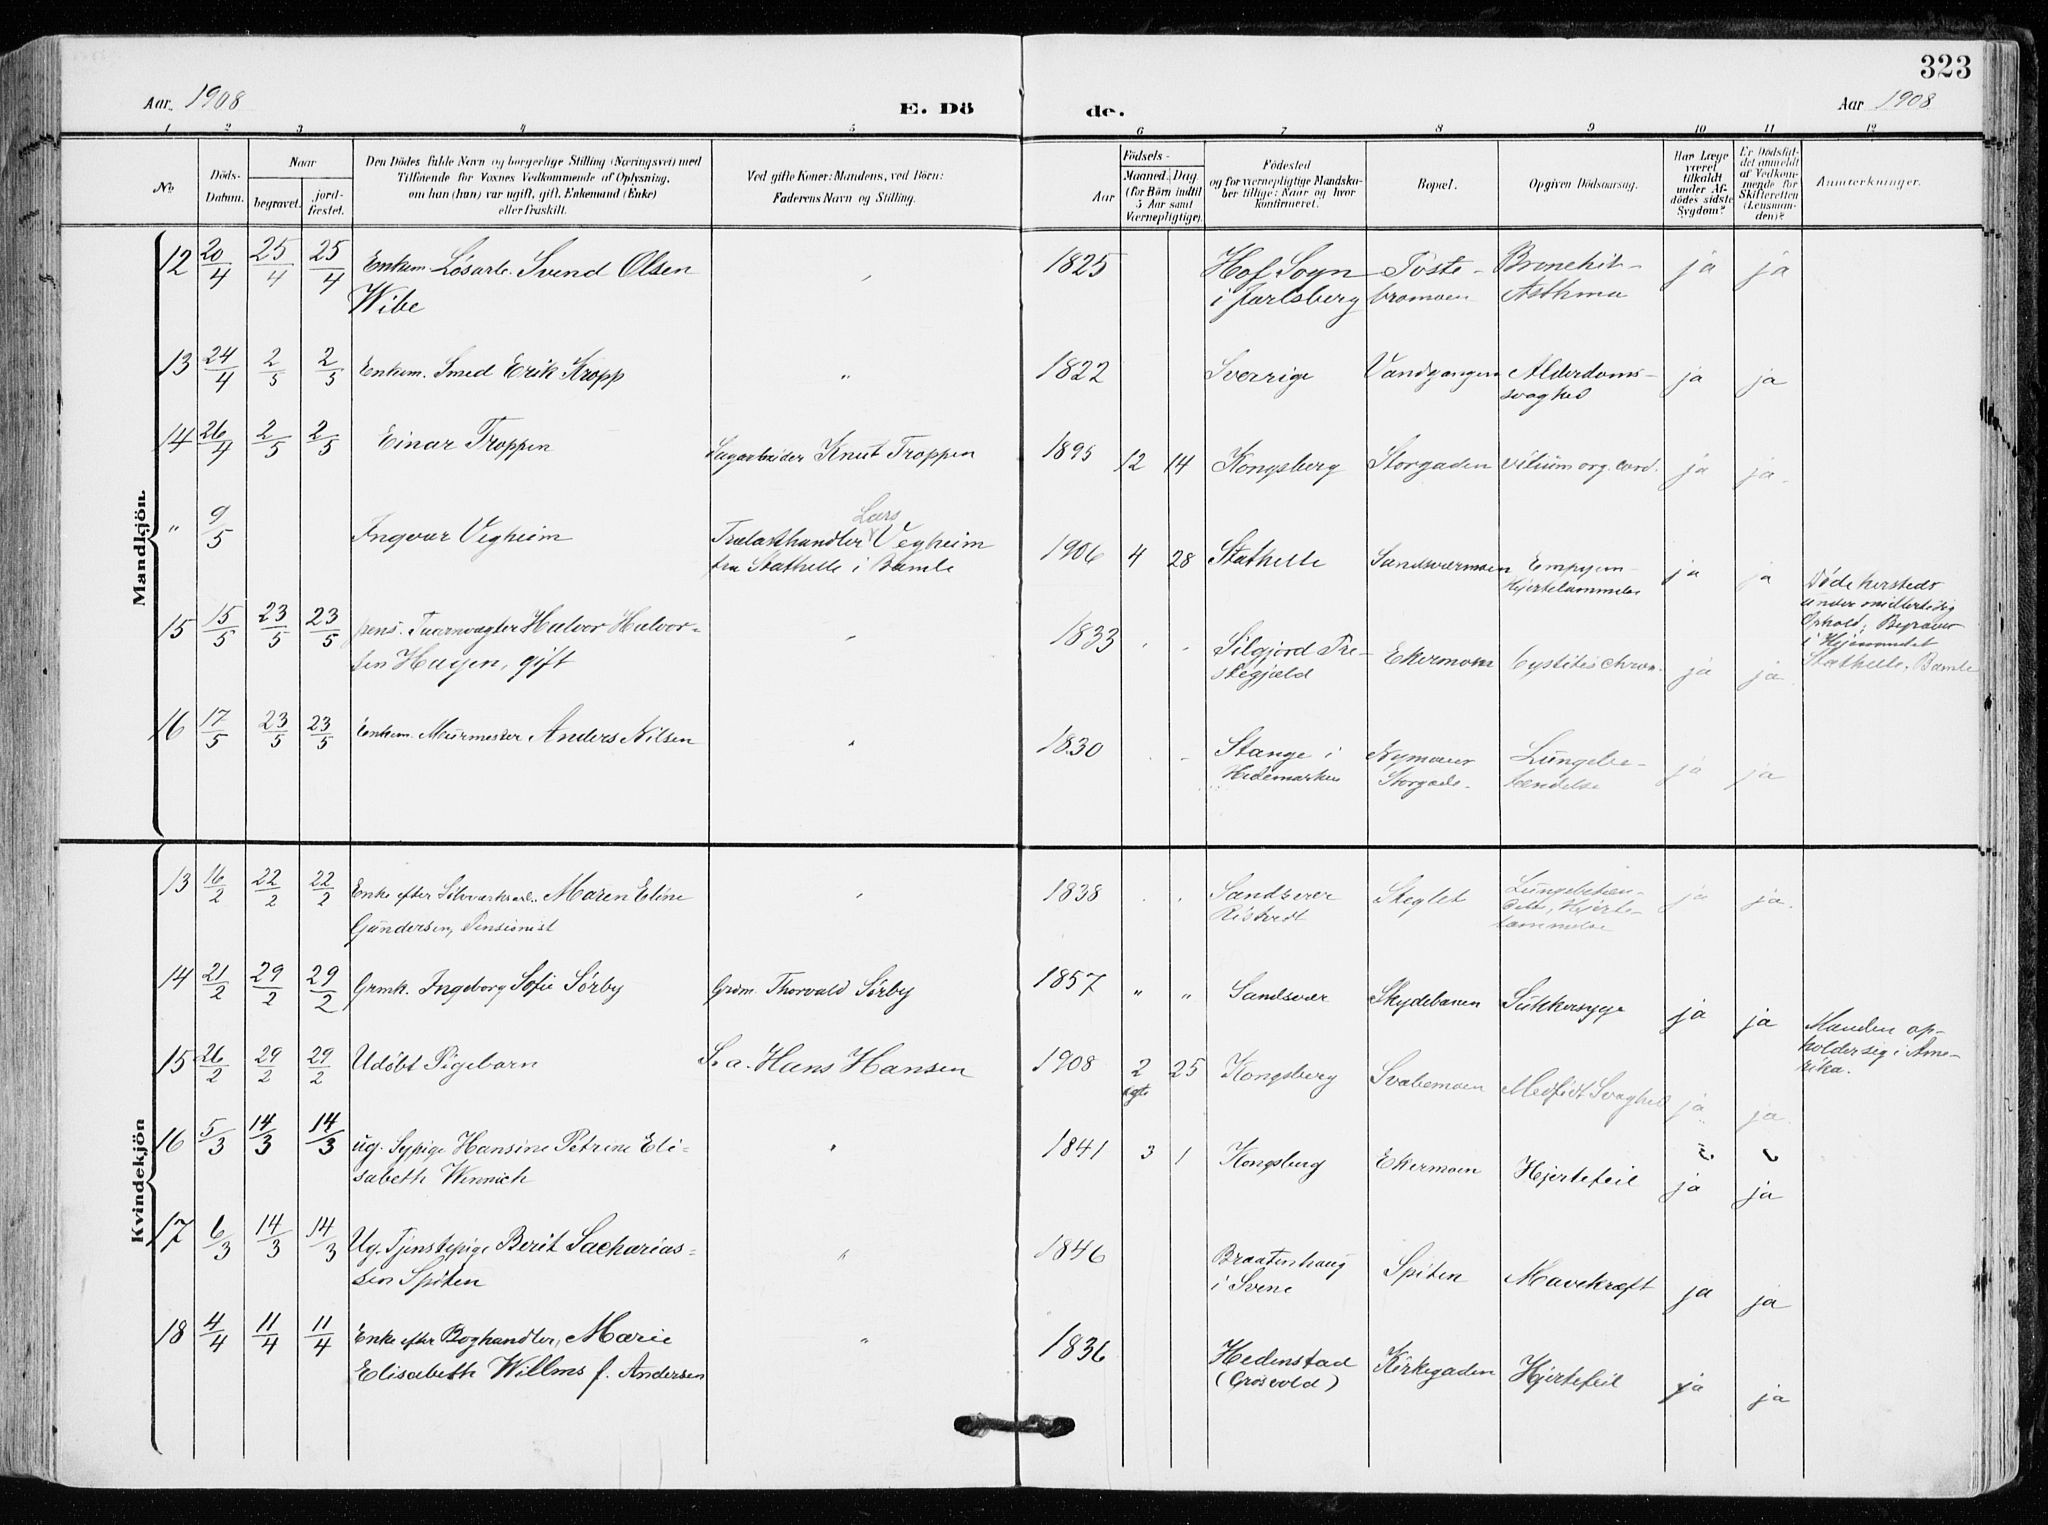 323
Aar. 1908 E. Dö de. Aar 1908
1 2 3 4 5 6 7 8 9 10 11 12
No.
Döds-
Datum.
Naar
begravet.
jord-
fæstet.
Den Dödes fulde Navn og borgerlige Stilling (Næringsvei) med
Tilföiende for Voxnes Vedkommende af Oplysning,
om han (hun) var ugift, gift, Enkemand (Enke)
eller fraskilt.
Ved gifte Koner: Mandens, ved Börn:
Faderens Navn og Stilling.
Födsels-
Aar
Maaned. Dag
(for Börn indtil
5 Aar samt
Værnepligtige).
Födested
og for værnepligtige Mandska-
ber tillige: Naar og hvor
konfirmeret.
Bopæl.
Opgiven Dödsaarsag.
Har Læge
været
tilkaldt
under Af-
dödes sidste
Sygdom?
Er Dödsfal-
det anmeldt
af Vedkom-
mende for
Skifteretten
(Lensman-
den)?
Anmærkninger.
Mandkjön.
12 20/4 25/4 25/4 Enkem. Løsarb. Svend Olsen
Wibe
" 1825 Hof Sogn
i Jarlsberg
Toste-
bromoen
Bronchit-
Asthma
ja ja
13 24/4 2/5 2/5 Enkem. Smed Erik Kropp " 1822 Sverrige Vandgangen Alderdoms-
svaghed
ja ja
14 26/4 2/5 2/5 Einar Troppen Sagarbeider Knut Troppen 1895 12 14 Kongsberg Storgaden vitium org. cord. ja ja
" 9/5 Ingvar Vegheim Lars
Trælasthandler Vegheim
fra Stathelle i Bamle
1906 4 28 Stathelle Sandsværmoen Empyem-
Hjertelammelse
ja ja
Døde hersteds
under midlertidig
Ophold; Begraves
i Hjemmet
Stathelle, Bamle
15 15/5 23/5 23/5 pens. Taarnvægter Halvor Halvor-
sen Hagen, gift
" 1833 " " Silgjord Tre-
stegjæld
Ekermoen Cystitis chron. ja ja
16 17/5 23/5 23/5 Enkem. Murmester Anders Nilsen " 1830 " " Stange i
Hedemarken
Nymoens
Storgade.
Lungebe-
tændelse
ja ja
Kvindekjön
13 16/2 22/2 22/2 Enke efter Sølvverksarb. Maren Eline
Gundersen, Pensionist
" 1838 " " Sandsvær
Ristvedt
Steglet Lungebetæn-
delse, Hjerte-
lammelse
ja ja.
14 21/2 29/2 29/2 Grmk. Ingeborg Sofie Sørby Grm. Thorvald Sørby 1857 " " Sandsvær Skydebanen Sukkersyge ja ja
Manden op-
holder sig i Ame-
rika.
15 26/2 29/2 29/2 Udøbt Pigebarn S. a. Hans Hansen 1908 2 25
ægte
Kongsberg Svabemoen Medfødt Svaghed ja ja.
16 5/3 14/3 14/3 ug. Sypige Hansine Petrine Eli-
sabeth Winnich
" 1841 3 1 Kongsberg Ekermoen Hjertefeil ja ja
17 6/3 14/3 14/3 Ug. Tjenstepige Berit Sacharias-
sen Spiten
" 1846 Braatenhaug
i Svene
Spiten Mavekræft ja ja
18 4/4 11/4 11/4 Enke efter Boghandler, Marie
Elisabeth Willms f. Andersen
" 1836 Hedenstad
(Grosvold)
Kirkegaden Hjertefeil ja ja